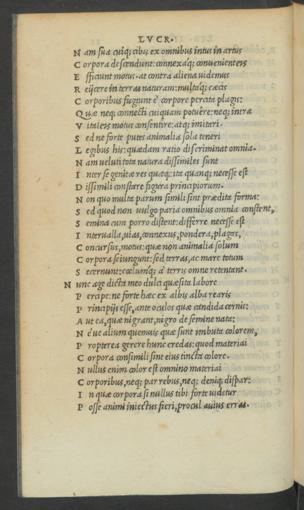 LVCR.
N am sua cuiq; cibis ex omnibus intus in artus
C orpora descendunt: connexaq; convenienteis
E fficiunt motus. at contra aliena videmus
R eijcere in terras naturam: multaq; cæcis
C orporibus fugiunt è corpore percita plagis:
Q uæ neq; connecti cuiquam potuere: neq; intra
V italeis motus consentire: atq; imitari.
S ed ne forte putes animalia sola teneri
L egibus his: quædam ratio discriminat omnia.
N am veluti tota natura dissimiles sunt
I nter se genitæ res quæq;: ita quanq; necesse est
D issimili constare figura principiorum.
N on quo multa parum simili sint prædita forma:
S ed quod non vulgo paria omnibus omnia constent,
S emina cum porro distent: differre necesse est
I ntervalla, vias, connexus, pondera, plagas,
C oncursus, motus: quæ non animalia solum
C orpora seiungunt: sed terras, ac mare totum
S ecernunt: cælumq; à terris omne retentant.
N unc age dicta meo dulci quæsita labore
P ercipe: ne forte hæc ex albis alba rearis
P rincipijs esse, ante oculos quæ candida cernis:
A ut ea, quæ nigrant, nigro de semine nata:
N éve alium quemvis quæ sunt imbuta colorem,
P ropterea gerere hunc credas: quod materiai
C orpora consimili sint eius tincta colore.
N ullus enim color est omnino materiai
C orporibus, neq; par rebus, neq; deniq; dispar:
I n quæ corpora si nullus tibi forte videtur
P osse animi iniectus fieri, procul avius erras.